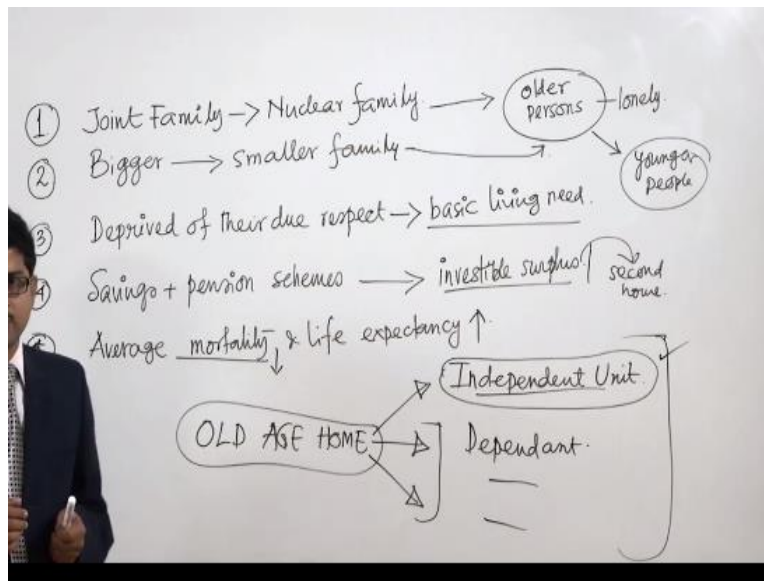 ① Joint Family → Nuclear family → older persons – lonely.
② Bigger → smaller family → younger people
③ Deprived of their due respect → basic living need.
④ Savings + pension schemes → investible surplus second home.
Average mortality ↓ & life expectancy ↑
Independent Unit.
OLD AGE HOME
Dependant.